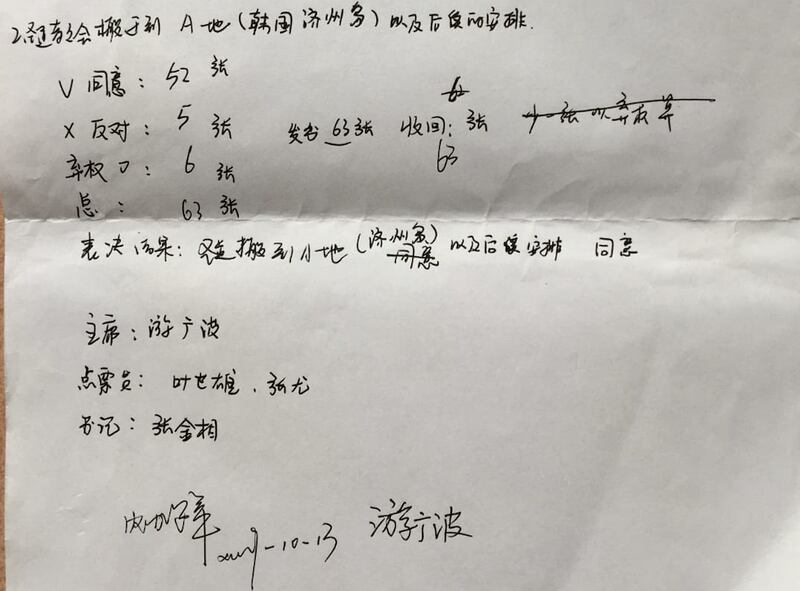 2. 圣道教会搬迁到 A地(韩国济州岛)以及后续的安排.
V 同意: 52 张
X 反对: 5 张 发出 63张 收回: 张
弃权 O: 6 张 63
总: 63 张
表决结果: 搬到A地(济州岛)以及后续安排 同意
主席: 游广波
点票员: 叶世雄、张尤
书记: 张金相
-10-13 游广波